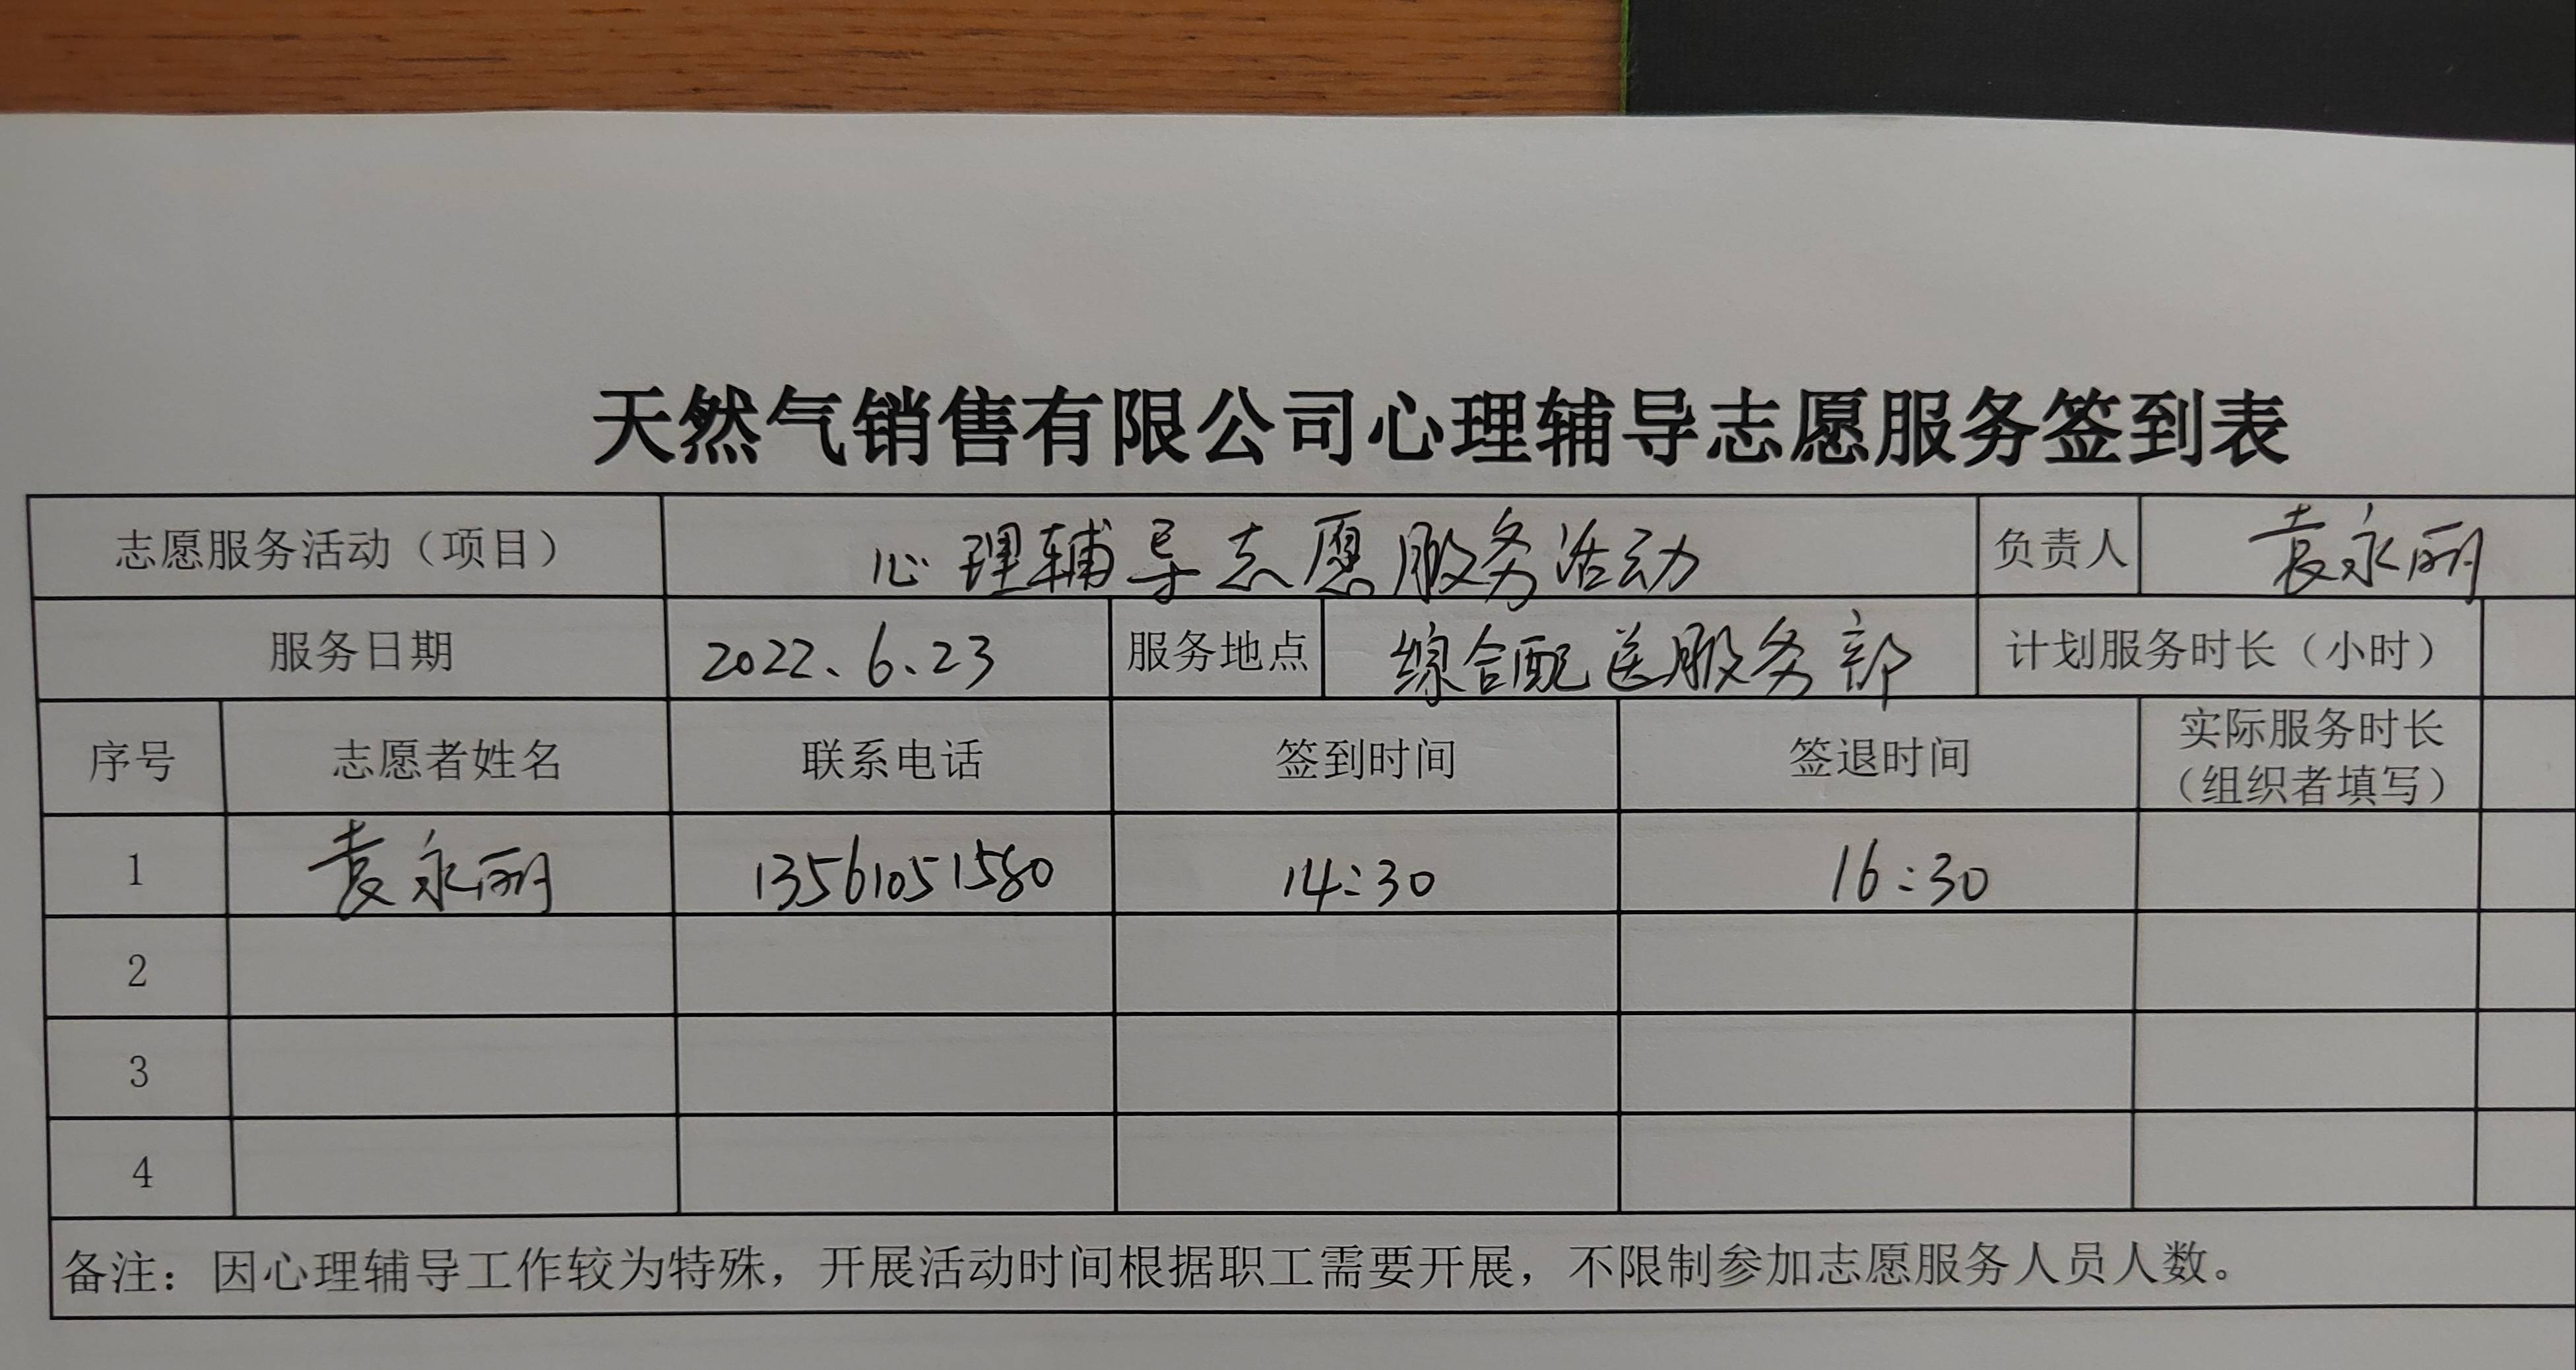 天然气销售有限公司心理辅导志愿服务签到表
志愿服务活动（项目） 心理辅导志愿服务活动 负责人 袁永丽
服务日期 2022、6、23 服务地点 综合配送服务部 计划服务时长（小时）
序号 志愿者姓名 联系电话 签到时间 签退时间 实际服务时长
（组织者填写）
1 袁永丽 13561051580 14:30 16:30
2
3
4
备注：因心理辅导工作较为特殊，开展活动时间根据职工需要开展，不限制参加志愿服务人员人数。